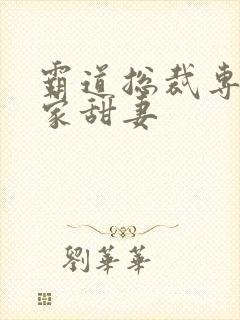 霸道總裁專
家甜妻
劉華華